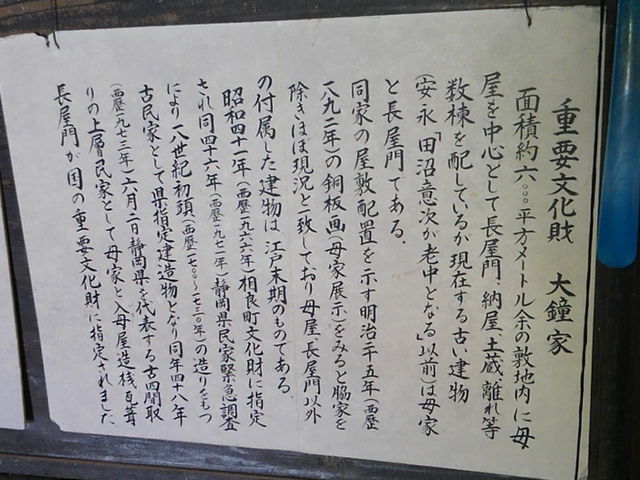 重要文化財　大鐘家
面積約六〇〇〇平方メートル余の敷地内に母
屋を中心として長屋門、納屋、土蔵、離れ等
数棟を配しているが現在する古い建物
(安永「田沼意次が老中となる」以前)は母家
と長屋門である。
同家の屋敷配置を示す明治二十五年(西歴
一八九二年)の銅板画(母家展示)をみると脇家を
除きほぼ現況と一致しており母屋、長屋門以外
の付属した建物は江戸末期のものである。
昭和四十一年(西歴一九六六年)相良町文化財に指定
され同四十六年(西歴一九七一年)静岡県民家緊急調査
により一八世紀初頭(西歴一七〇〇〜一七三〇年)の造りをもつ
古民家として県指定建造物となり同年四十八年
(西歴一九七三年)六月二日静岡県を代表する古四間取
りの上層民家として母家と入母屋造桟瓦葺
長屋門が国の重要文化財に指定されました